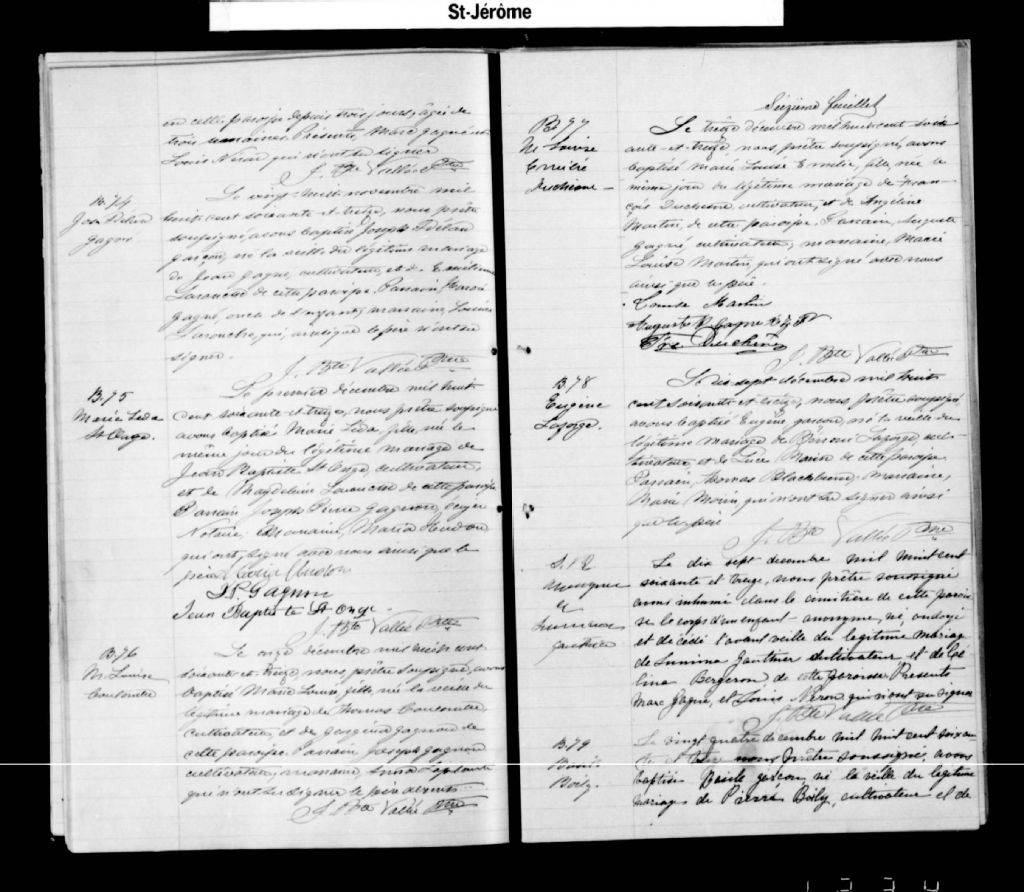 St-Jérôme
en cette paroisse depuis trois jours, âgé de
trois semaines. Présents, Marc Gagné et
Louis Néron qui n'ont su signer
J. Bte Vallée Ptre
B. 74
Jos.
Gagné
Le vingt huit novembre mil
huit cent soixante et treize, nous prêtre
soussigné, avons baptisé Joseph
garçon, né la veille du légitime mariage
de Jean Gagné, cultivateur, et de
Larouche de cette paroisse. Parrain
Gagné, oncle de l'enfant, marraine, Louise
Larouche, qui, ainsi que le père n'ont su
signer.
J. Bte Vallée Ptre
B. 75
Marie Leda
St Onge.
Le premier décembre mil huit
cent soixante et treize, nous prêtre soussigné
avons baptisé Marie Léda, fille, née le
même jour du légitime mariage de
Jean Baptiste St Onge, cultivateur,
et de Magdeleine Larouche de cette paroisse
Parrain Joseph Pierre Gagnon, écuyer
Notaire, Marraine, Maria Hudon
qui ont signé avec nous ainsi que le
père Hudon
J P Gagnon
Jean Baptiste St Onge
J. Bte Vallée Ptre
B. 76
M. Louise
Coulombe
Le onze décembre mil huit cent
soixante et treize nous, prêtre soussigné, avons
baptisé Marie Louise, fille, née la veille du
légitime mariage de Thomas Coulombe
cultivateur, et de Georgina Gagnon de
cette paroisse. Parrain Joseph Gagnon
cultivateur, marraine, Laplante
qui n'ont su signer le père absent
J. Bte Vallée Ptre
Seizième feuillet
B. 77
M. Louise
Emélie
Duchesne
Le treize décembre mil huit cent soix
ante et treize, nous, prêtre soussigné, avons
baptisé Marie Louise Emélie, fille, née le
même jour du légitime mariage de Fran
çois Duchesne cultivateur, et de Angeline
Martin, de cette paroisse. Parrain, Auguste
Gagné cultivateur, marraine, Marie
Louise Martin, qui ont signé avec nous
ainsi que le père.
Martin
Auguste Gagné
Frs Duchesne
J. Bte Vallée Ptre
B. 78
Eugène
Laforge.
Le dix sept décembre mil huit
cent soixante et treize, nous, prêtre soussigné
avons baptisé Eugène garçon, né la veille du
légitime mariage de Laforge, cul-
tivateur, et de Luce Morin de cette paroisse
Parrain, Thomas Blackburn, marraine,
Marie Morin, qui n'ont su signer ainsi
que le père
J. Bte Vallée Ptre
S. 12
Anonyme
de
Gauthier
Le dix sept décembre mil huit cent
soixante et treize, nous prêtre soussigné
avons inhumé dans le cimitière de cette parois
se le corps d'un enfant anonyme, né, ondoyé
et décédé l'avant veille du légitime mariage
de Gauthier cultivateur et de Cé
lina Bergeron de cette paroisse Présents
Marc Gagné, et Louis Néron qui n'ont su signer
J. Bte Vallée Ptre
B. 79
Boily.
Le vingt quatre décembre mil huit cent soixan
te et treize nous prêtre soussigné, avons
baptisé garçon, né la veille du légitime
mariage de Pierre Boily, cultivateur et de